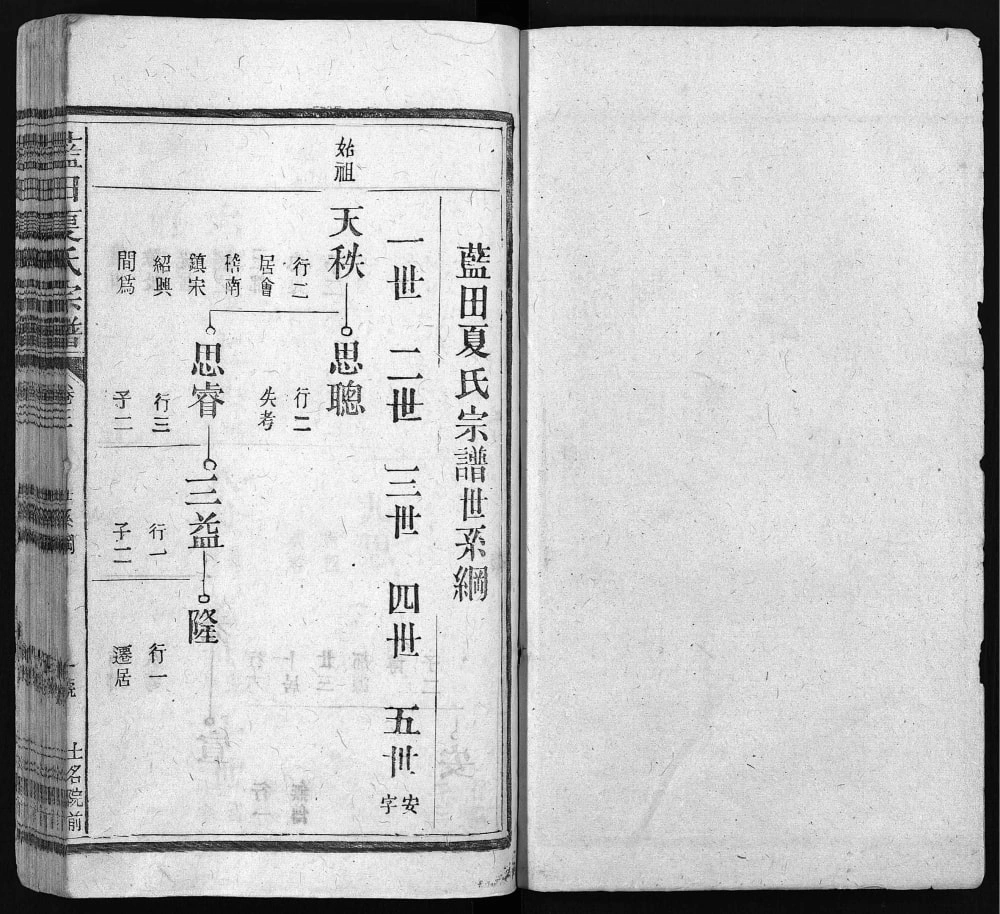 藍田夏氏宗譜世系綱
一世 二世 三世 四世 五世 安字
始祖
天秩 思聰
行二
居會
稽南
鎮宋
紹興
間爲
行二
失考
思睿 三益 隆
行三
子二
行一
子二
行一
遷居
藍田夏氏宗譜 卷三 世系綱 土名院前